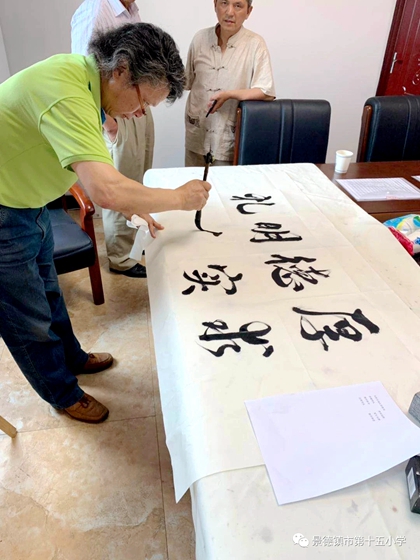 厚德明礼
求实
景德镇市第十五小学